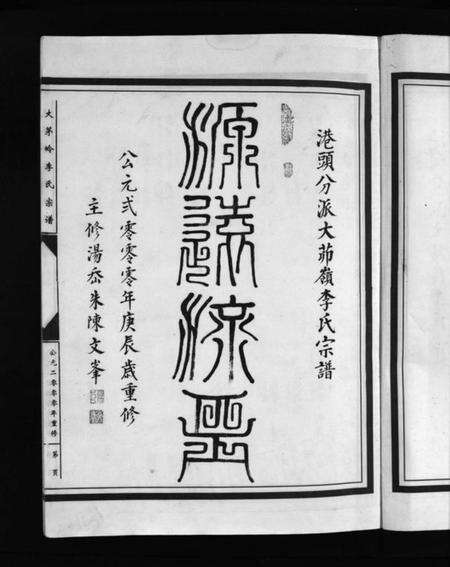 港頭分派大茆嶺李氏宗譜
源遠流長
公元弍零零零年庚辰歲重修
主修湯岙朱陳文峯
大茅岭李氏宗谱
公元二零零零年重修
第 頁